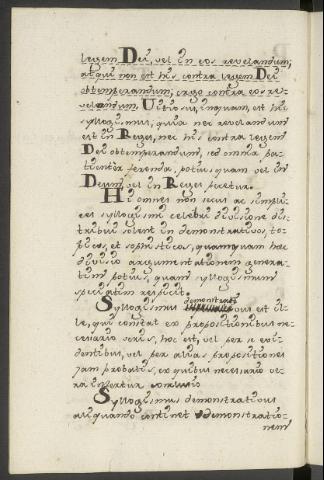 legem Dei, vel in eos revelandum;
atqui non est his contra legem Dei
obtemperandum, ergo contra eos re-
velandum. Vitiosus, inquam, est hic
syllogismus, quia nec revelandum
est in Reges, nec his contra legem
Dei obtemperandum, sed omnia pa-
tienter ferenda, potius quam vel in
Deum, vel in Reges peccetur.
Hi omnes non secus ac simpli-
ces syllogismi celebri divisione dis-
tribui solent in demonstrativos, to-
picos, et sophisticos, quamquam hæc
divisio argumentationem genera-
tim potius, quam syllogismum
speciatim respicit.
Syllogismus demonstrativus est il-
le, qui constat ex propositionibus ne-
cessario veris, hoc est, vel per se evi-
dentibus, vel per alias propositiones
jam probatis, ex quibus necessario ve-
ra infertur conclusio
Syllogismus demonstrativus
aliquando continet demonstratio-
nem